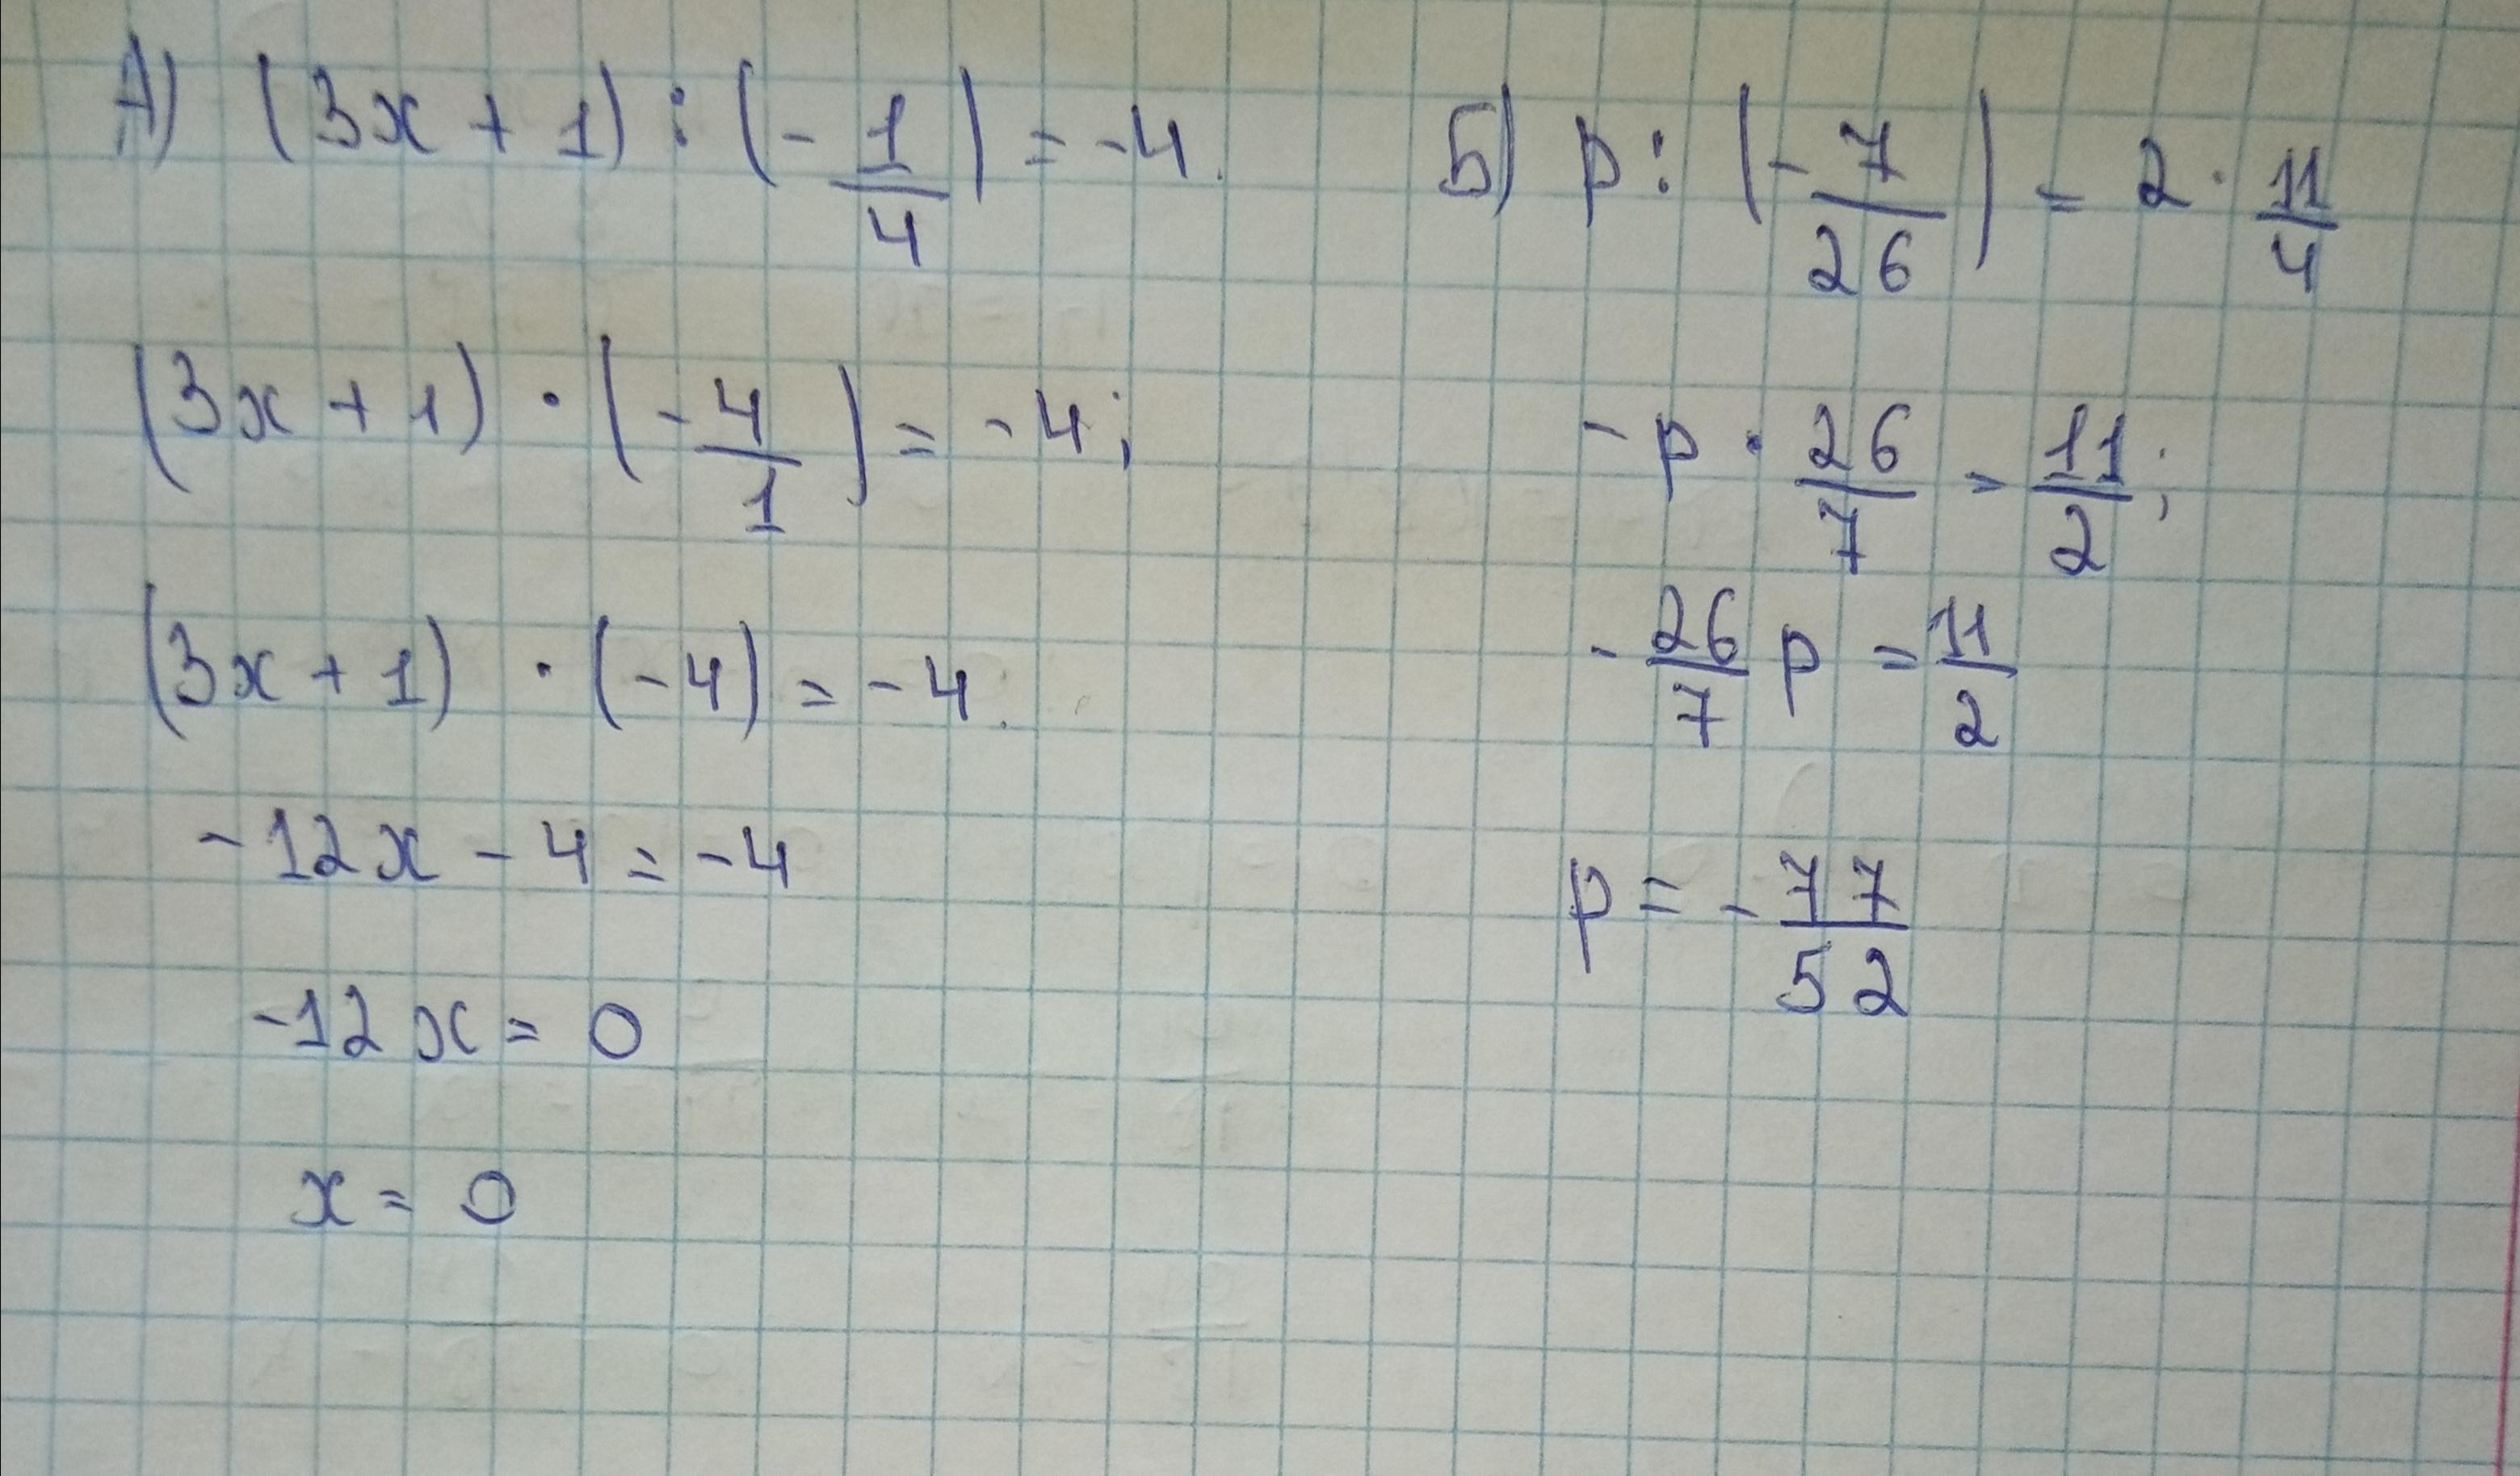 А) (3x + 1) : (- 1/4) = -4.
(3x + 1) · (- 4/1) = -4;
(3x + 1) · (-4) = -4.
-12x - 4 = -4
-12x = 0
x = 0
Б) p : (- 7/26) = 2 · 11/4
-p · 26/7 = 11/2;
- 26/7 p = 11/2
p = - 77/52